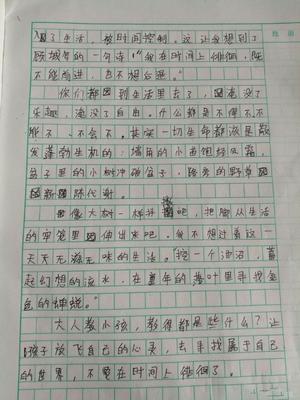 了生活，被时间控制。这让我想到了
顾城的一句诗："我在时间上徘徊，既
不能前进，也不想后退。"
你们都回到生活里去了，淹没了
乐趣，淹没了自由。什么都是不得不不
能不、不会不。其实一切生命都该是散
发蓬勃生机的：墙角的小苗饱经风霜，
盆子里的小树冲破盆子，路旁的野草
新陈代谢。
像大树一样吧，把脚从生活
的牢笼里伸出来吧。我不想过着这一
天天无滋无味的生活。"挖一个池沼，蓄
起幻想的流水，在童年的落叶里寻找金
色的蝉蜕。"
大人教小孩，教得都是些什么？让
孩子放飞自己的心灵，去寻找属于自己
的世界，不要在时间上徘徊了。